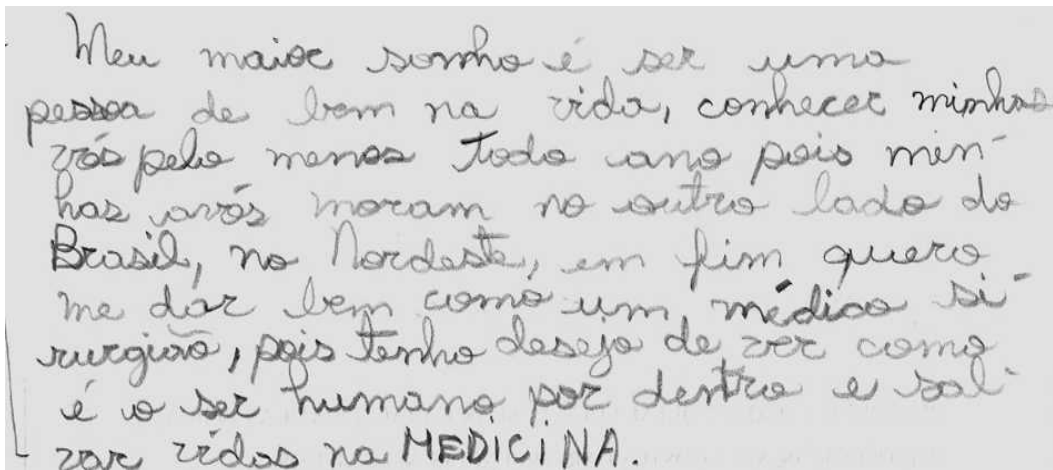 Meu maior sonho é ser uma
pessoa de bem na vida, conhecer minhas
vós pelo menos todo ano pois min-
has avós moram no outro lado do
Brasil, no Nordeste, em fim quero
me dar bem como um médico si-
rurgião, pois tenho desejo de ver como
é o ser humano por dentro e sal-
var vidas na MEDICINA.